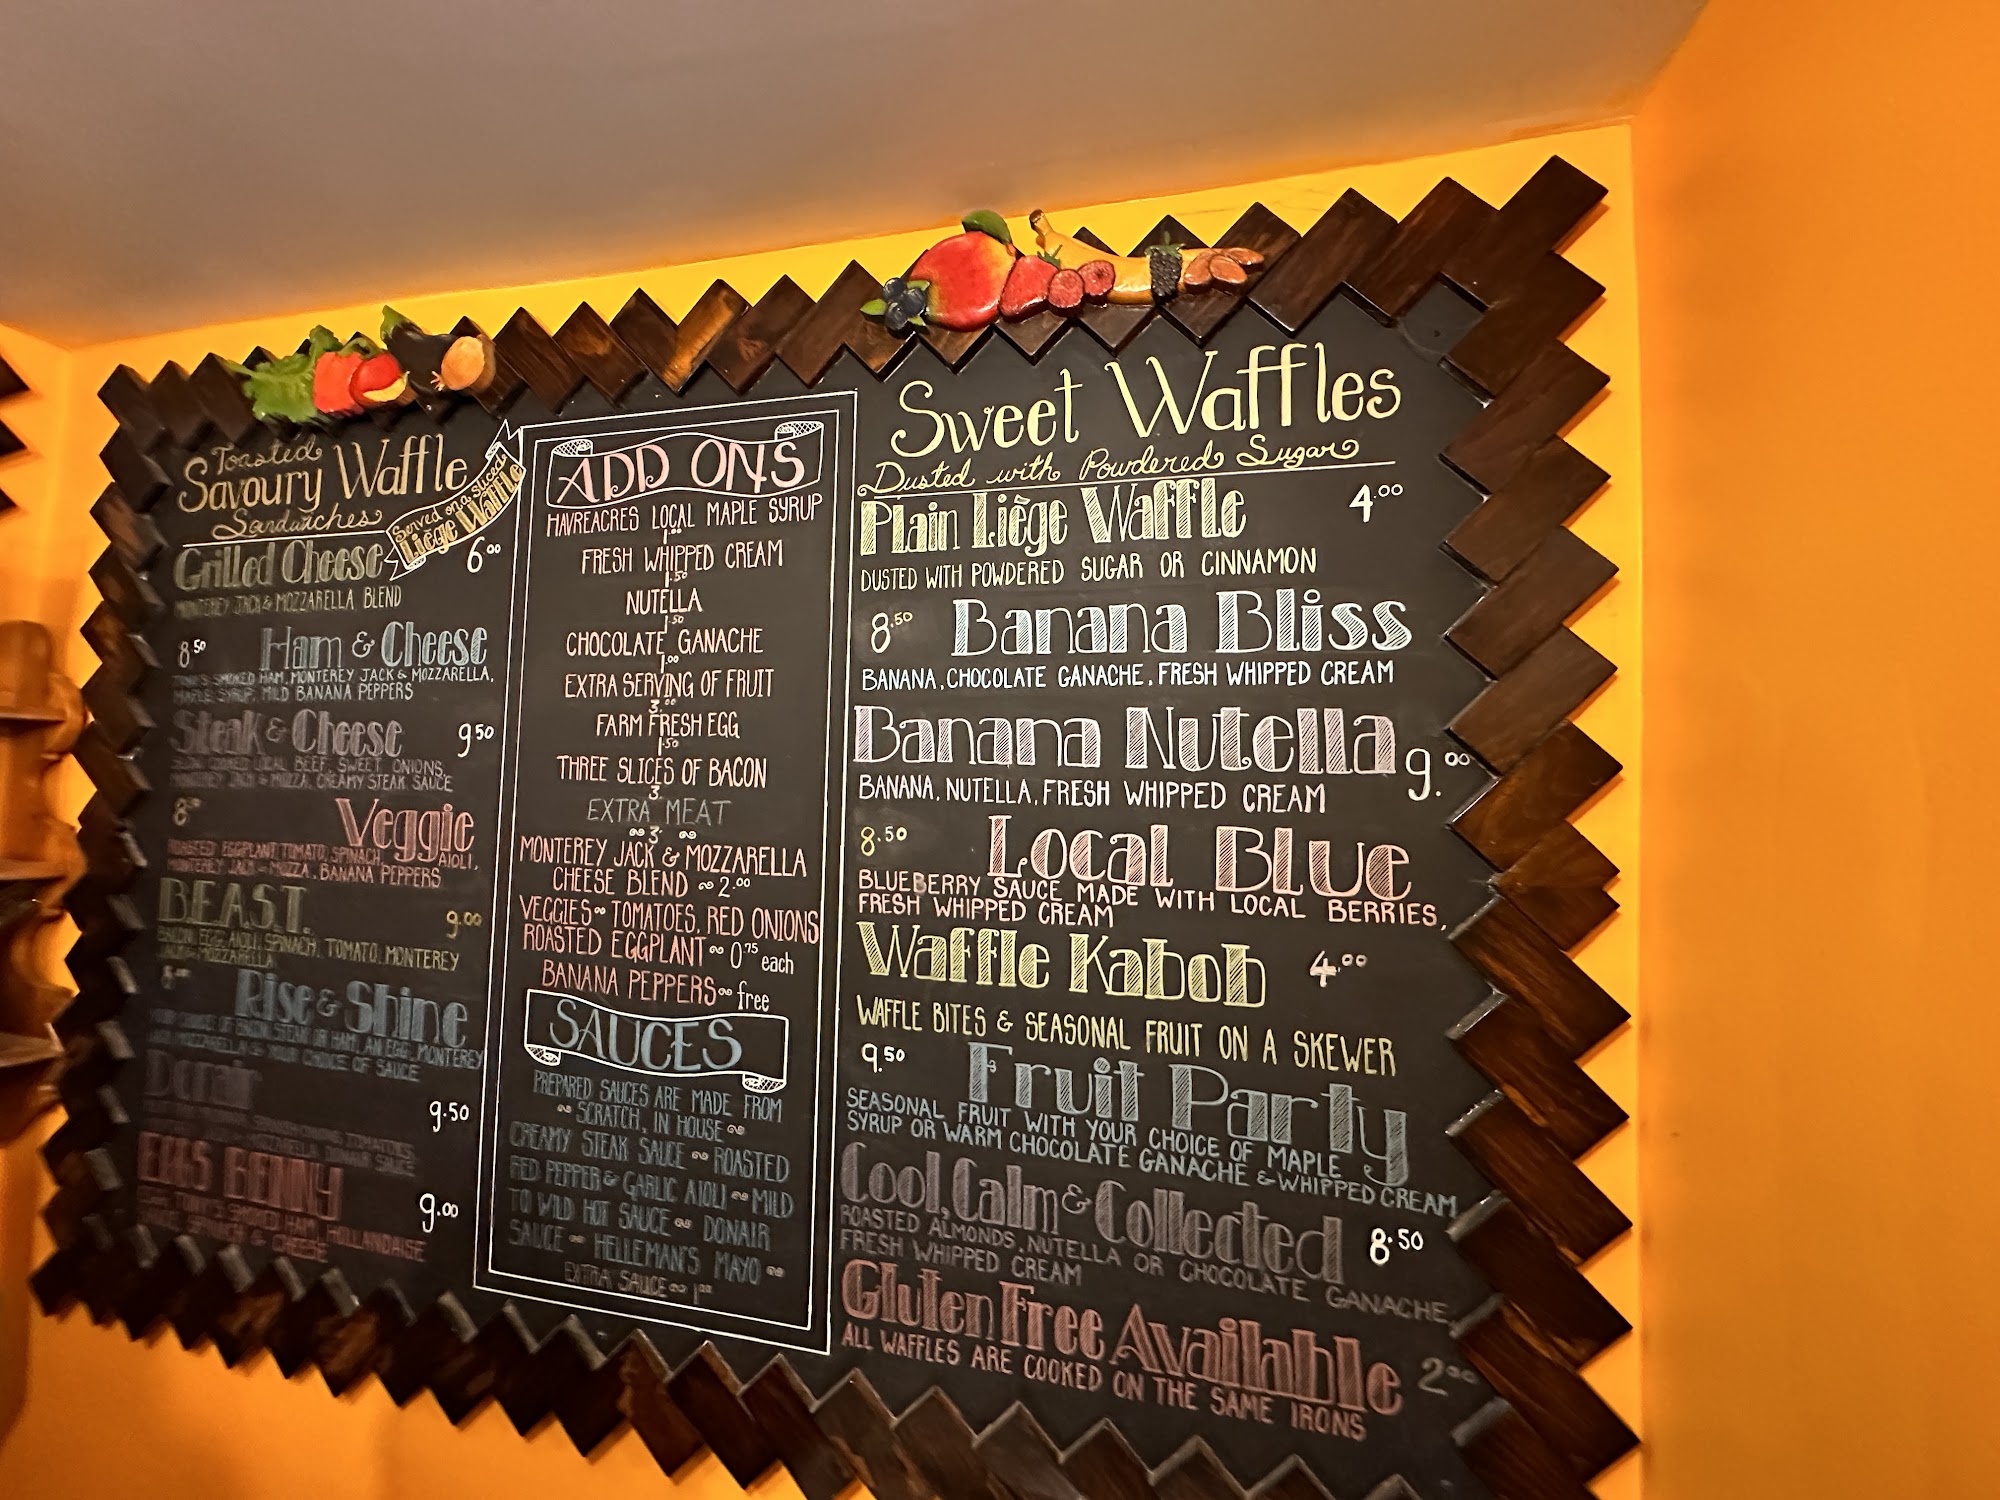 Toasted
Savoury Waffle
Sandwiches
Served on a sliced
Liège Waffle
Grilled Cheese 6.00
MONTEREY JACK & MOZZARELLA BLEND
8.50 Ham & Cheese
SMOKED HAM, MONTEREY JACK & MOZZARELLA,
MAPLE SYRUP, MILD BANANA PEPPERS
Steak & Cheese 9.50
SLOW COOKED LOCAL BEEF, SWEET ONIONS,
MONTEREY JACK & MOZZA, CREAMY STEAK SAUCE
8. Veggie
ROASTED EGGPLANT TOMATO, SPINACH, AIOLI,
MONTEREY JACK & MOZZA, BANANA PEPPERS
B.E.A.S.T. 9.00
BACON, EGG, AIOLI, SPINACH, TOMATO, MONTEREY
JACK & MOZZARELLA
Rise & Shine
YOUR CHOICE OF BACON STEAK OR HAM, AN EGG, MONTEREY
AND MOZZARELLA & YOUR CHOICE OF SAUCE
Donair 9.50
TOMATOES,
MOZZARELLA DONAIR SAUCE
EGGS BENNY 9.00
SMOKED HAM, HOLLANDAISE
SPINACH & CHEESE
ADD ONS
HAVREACRES LOCAL MAPLE SYRUP
1.00
FRESH WHIPPED CREAM
1.50
NUTELLA
1.50
CHOCOLATE GANACHE
1.00
EXTRA SERVING OF FRUIT
3.00
FARM FRESH EGG
1.50
THREE SLICES OF BACON
3.
EXTRA MEAT
3.
MONTEREY JACK & MOZZARELLA
CHEESE BLEND ~ 2.00
VEGGIES ~ TOMATOES, RED ONIONS
ROASTED EGGPLANT ~ 0.75 each
BANANA PEPPERS ~ free
SAUCES
PREPARED SAUCES ARE MADE FROM
~ SCRATCH, IN HOUSE ~
CREAMY STEAK SAUCE ~ ROASTED
RED PEPPER & GARLIC AIOLI ~ MILD
TO WILD HOT SAUCE ~ DONAIR
SAUCE ~ HELLEMAN'S MAYO ~
EXTRA SAUCE ~ 1.00
Sweet Waffles
Dusted with Powdered Sugar
Plain Liège Waffle 4.00
DUSTED WITH POWDERED SUGAR OR CINNAMON
8.50 Banana Bliss
BANANA, CHOCOLATE GANACHE, FRESH WHIPPED CREAM
Banana Nutella 9.00
BANANA, NUTELLA, FRESH WHIPPED CREAM
8.50 Local Blue
BLUEBERRY SAUCE MADE WITH LOCAL BERRIES,
FRESH WHIPPED CREAM
Waffle Kabob 4.00
WAFFLE BITES & SEASONAL FRUIT ON A SKEWER
9.50 Fruit Party
SEASONAL FRUIT WITH YOUR CHOICE OF MAPLE
SYRUP OR WARM CHOCOLATE GANACHE & WHIPPED CREAM
Cool, Calm & Collected 8.50
ROASTED ALMONDS, NUTELLA OR CHOCOLATE GANACHE,
FRESH WHIPPED CREAM
Gluten Free Available 2.00
ALL WAFFLES ARE COOKED ON THE SAME IRONS